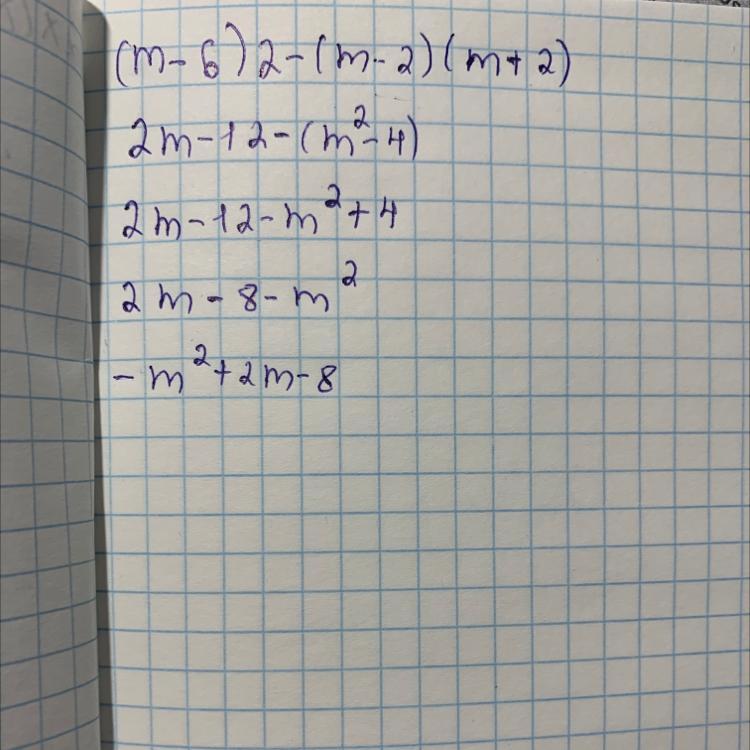 (m-6)2-(m-2)(m+2)
2m-12-(m²-4)
2m-12-m²+4
2m-8-m²
-m²+2m-8